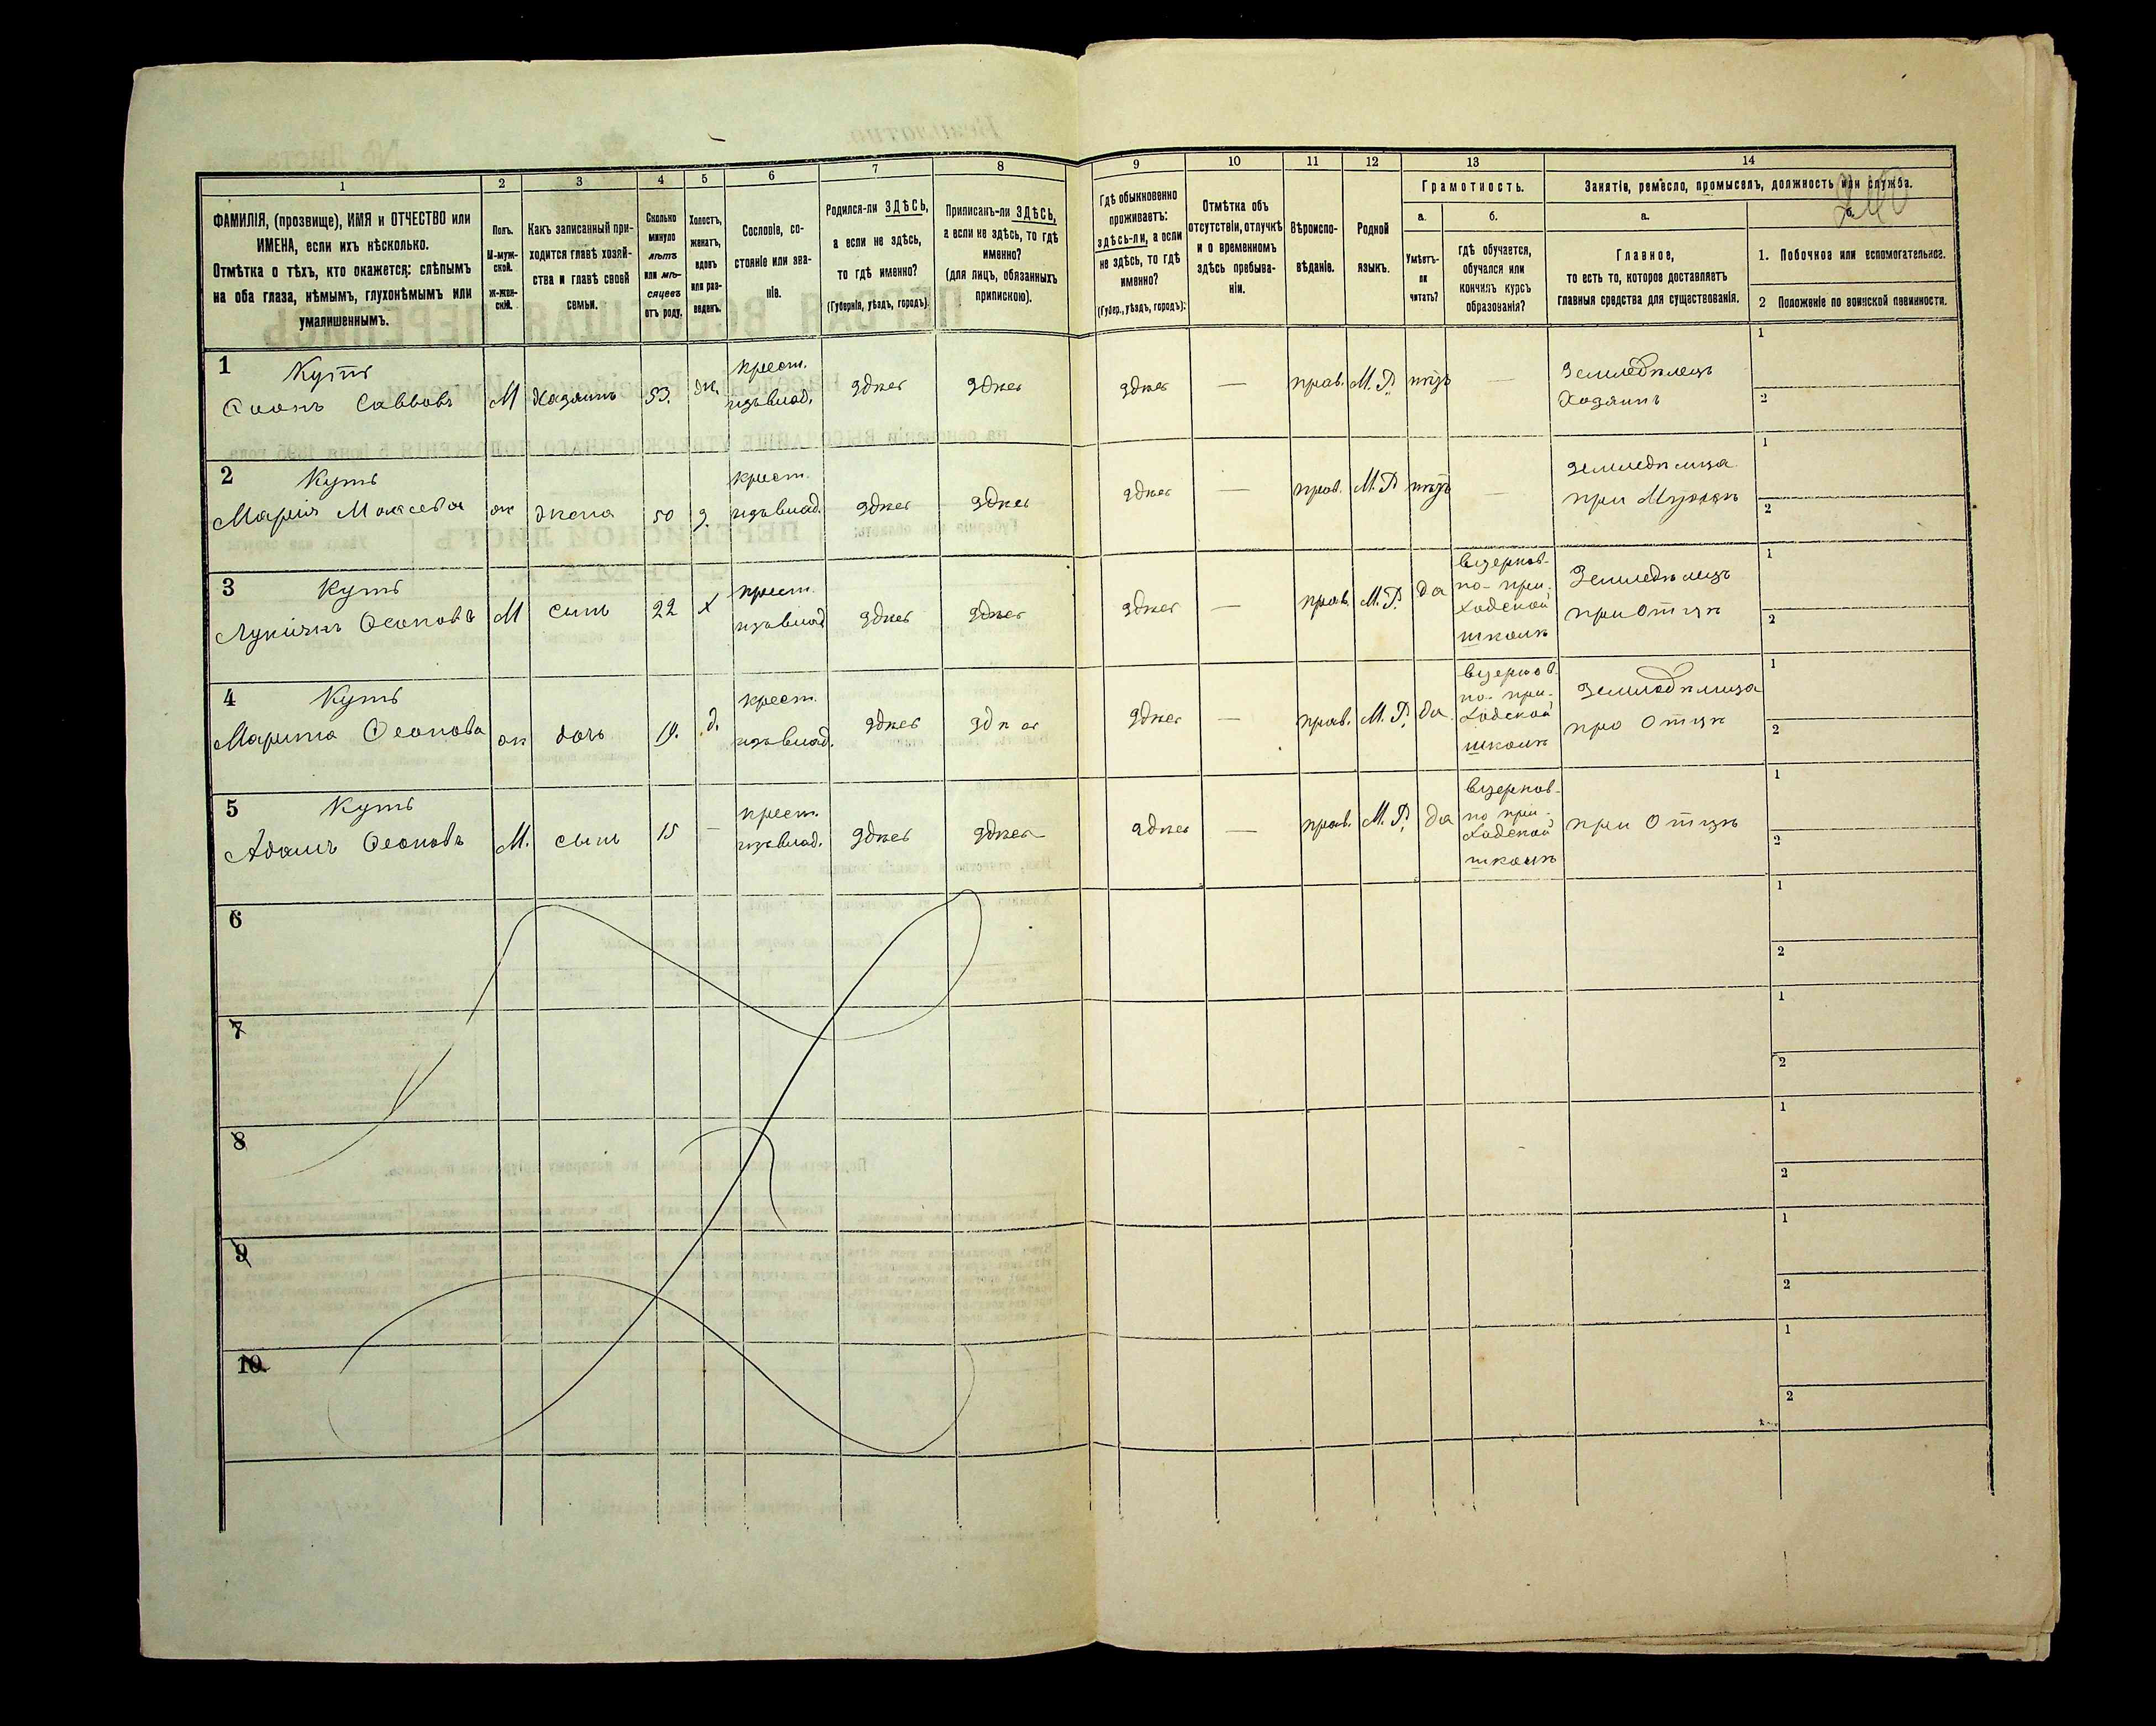 1 2 3 4 5 6 7 8 9 10 11 12 13 14
ФАМИЛІЯ, (прозвище), ИМЯ и ОТЧЕСТВО или
ИМЕНА, если ихъ нѣсколько.
Отмѣтка о тѣхъ, кто окажется: слѣпымъ
на оба глаза, нѣмымъ, глухонѣмымъ или
умалишеннымъ.
Полъ.
М-муж-
ской.
Ж-жен-
скій.
Какъ записанный при-
ходится главѣ хозяй-
ства и главѣ своей
семьи.
Сколько
минуло
лѣтъ
или мѣ-
сяцевъ
отъ роду.
Холостъ,
женатъ,
вдовъ
или раз-
веденъ.
Сословіе, со-
стояніе или зва-
ніе.
Родился-ли ЗДѢСЬ,
а если не здѣсь,
то гдѣ именно?
(Губернія, уѣздъ, городъ)
Приписанъ-ли ЗДѢСЬ,
а если не здѣсь, то гдѣ
именно?
(для лицъ, обязанныхъ
припискою).
Гдѣ обыкновенно
проживаетъ:
здѣсь-ли, а если
не здѣсь, то гдѣ
именно?
(Губер., уѣздъ, городъ).
Отмѣтка объ
отсутствіи, отлучкѣ
и о временномъ
здѣсь пребыва-
ніи.
Вѣроиспо-
вѣданіе.
Родной
языкъ.
Грамотность.
а.
Умѣетъ-
ли
читать?
б.
гдѣ обучается,
обучался или
кончилъ курсъ
образованія?
Занятіе, ремесло, промыселъ, должность или служба.
а.
Главное,
то есть то, которое доставляетъ
главныя средства для существованія.
б.
1. Побочное или вспомогательное.
2 Положеніе по воинской повинности.
1 Куть
Саввовъ М Хазяинъ 53. ж.
крест.
изъ влад.
здѣсь здѣсь здѣсь — прав. М. Р. нѣтъ —
Земледѣлецъ
Хозяинъ
1
2
2 Куть
Марія ж жена 50 з.
крест.
изъ влад.
здѣсь здѣсь здѣсь — прав. М. Р. нѣтъ —
земледѣлица
при Мужѣ
1
2
3 Куть
Лукіянъ Осиповъ М сынъ 22 х
крест.
изъ влад
здѣсь здѣсь здѣсь — прав. М. Р. да
вцерков-
но-при-
ходской
школѣ
Земледѣлецъ
при Отцѣ
1
2
4 Куть
Марина Осипова ж дочь 19. д.
крест.
изъ влад.
здѣсь здѣсь здѣсь — прав. М. Р. да
вцерков-
но-при-
ходской
школѣ
Земледѣлица
при Отцѣ
1
2
5 Куть
Адамъ Осиповъ М. сынъ 15 —
крест.
изъ влад.
здѣсь здѣсь здѣсь — прав. М. Р. да
вцерков-
но при-
ходской
школѣ
при Отцѣ
1
2
6
1
2
7
1
2
8
1
2
9
1
2
10
1
2